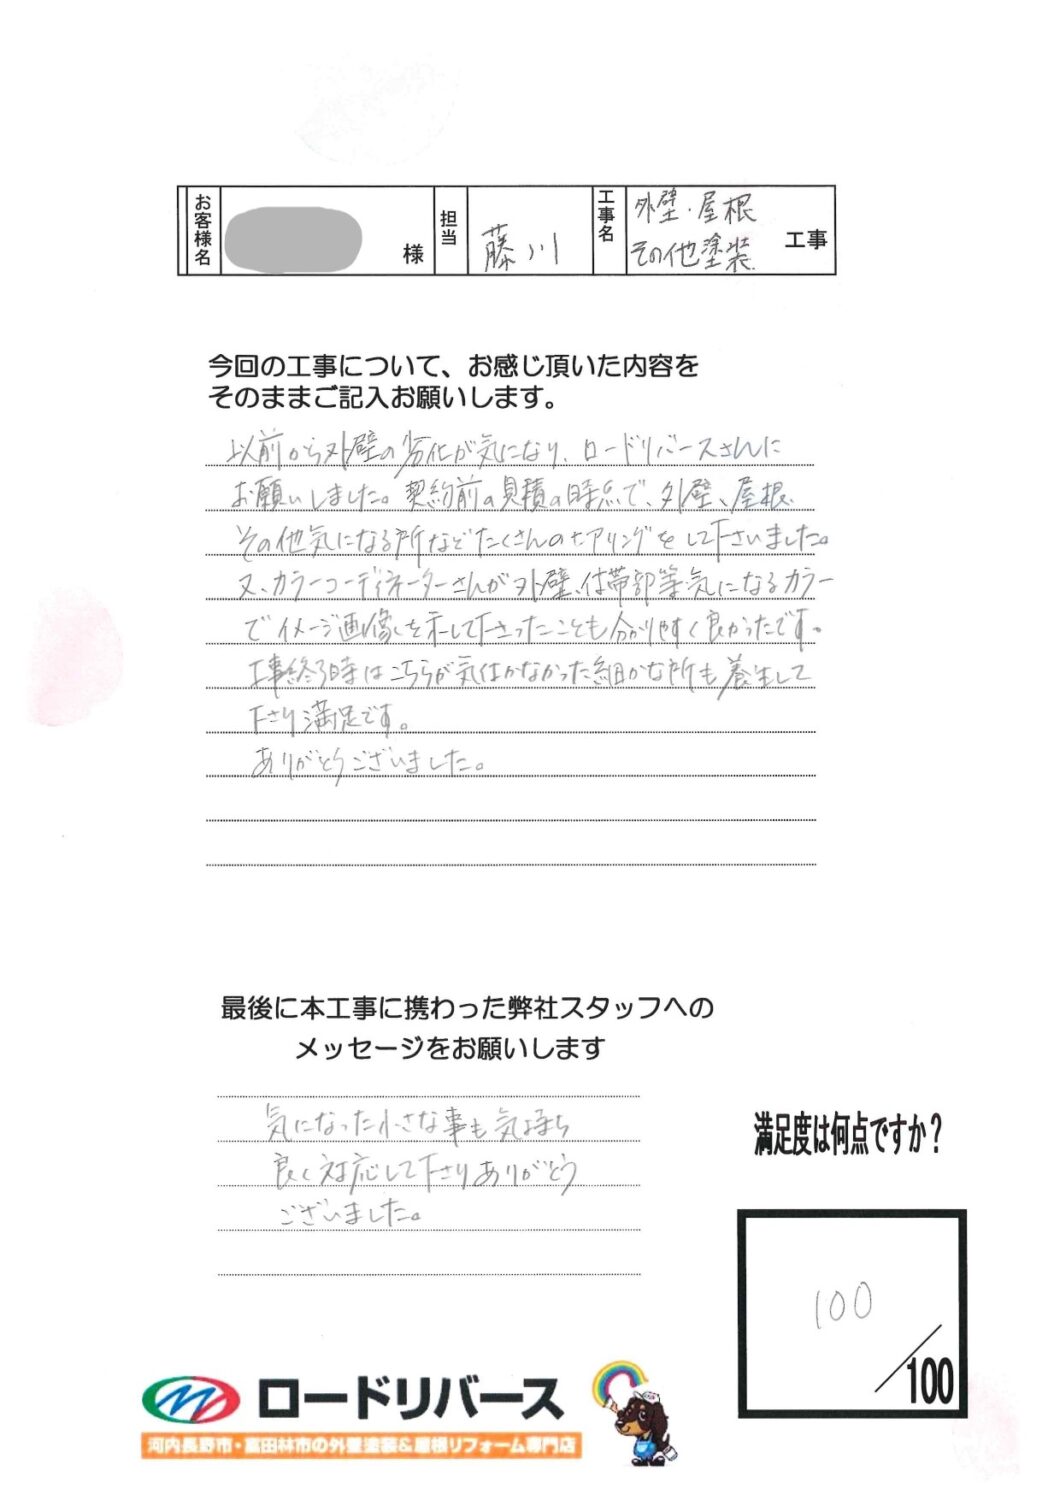 お客様名 様 担当 藤川 工事名 外壁・屋根 その他塗装 工事
今回の工事について、お感じ頂いた内容を
そのままご記入お願いします。
以前から外壁の劣化が気になり、ロードリバースさんに
お願いしました。契約前の見積の時点で、外壁、屋根、
その他気になる所などたくさんのヒアリングをして下さいました。
又、カラーコーディネーターさんが外壁、付帯部等、気になるカラー
でイメージ画像を示して下さったことも分かりやすく良かったです。
工事終了時はこちらが気付かなかった細かな所も養生して
下さり満足です。
ありがとうございました。
最後に本工事に携わった弊社スタッフへの
メッセージをお願いします
気になった小さな事も気持ち
良く対応して下さりありがとう
ございました。
満足度は何点ですか？
100
/100
ロードリバース
河内長野市・富田林市の外壁塗装&屋根リフォーム専門店